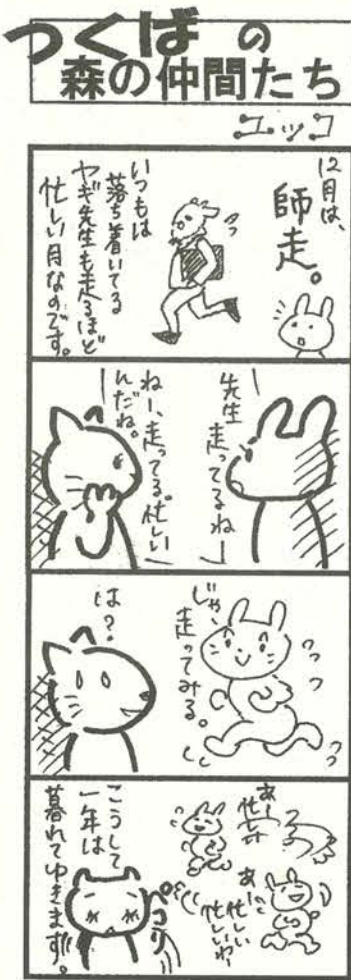 つくばの
森の仲間たち
ユッコ
12月は、
師走。
いつもは
落ち着いてる
ヤギ先生も走るほど
忙しい月なのです。
先生
走ってるねー
ねー、走ってる。忙しい
んだね。
じゃ、
走ってみる。
は?
あー
忙し
あーっ
忙しい
忙しいわ
こうして
一年は
暮れてゆきます。
ペコリ